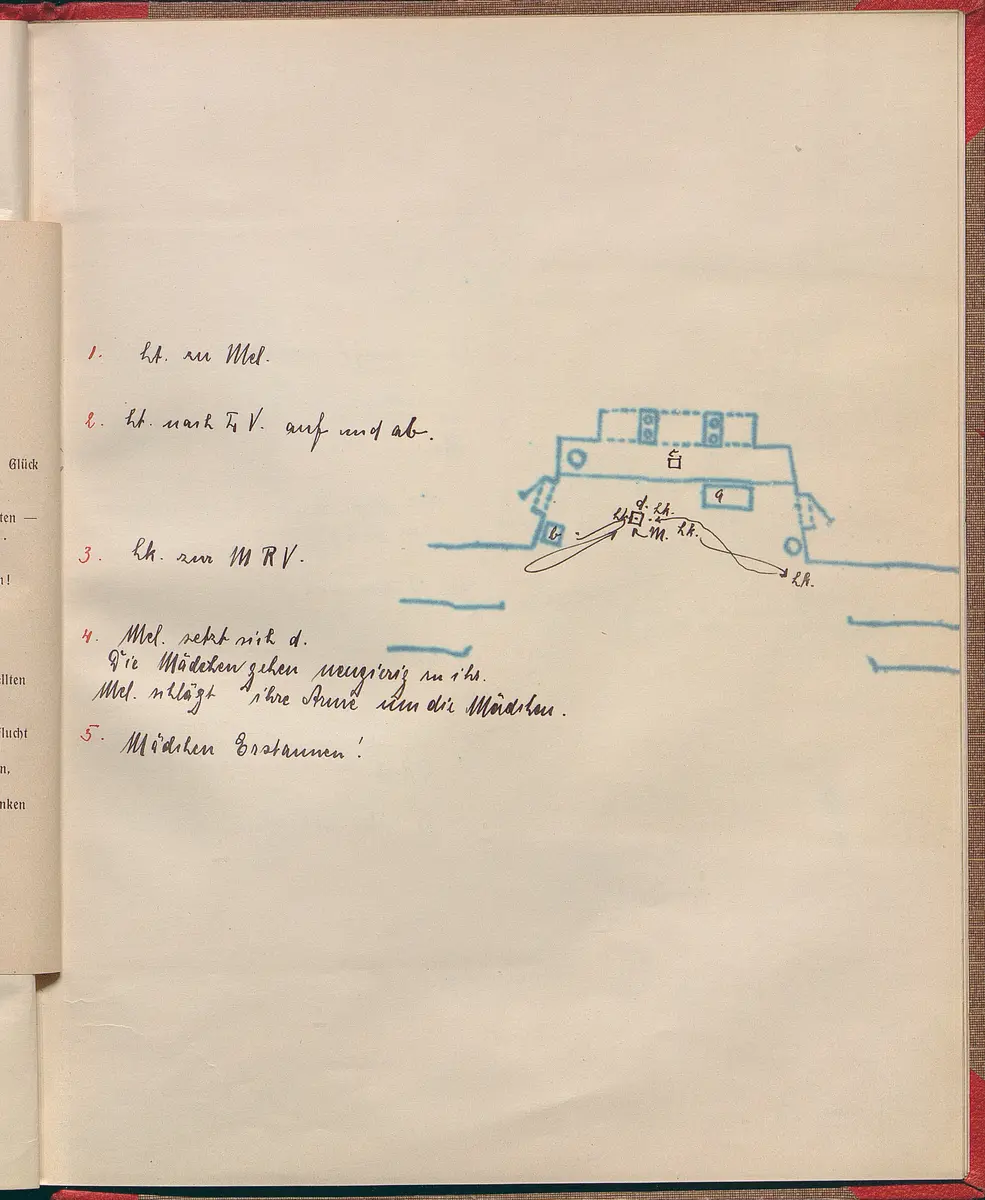 Glück
ten —
n!
llten
flucht
n,
nken
1. ht. zu Mel.
2. ht. nach L V. auf und ab.
3. hk. zur M R V.
4. Mel. setzt sich d.
Die Mädchen gehen neugierig zu ihr.
Mel. schlägt ihre Arme um die Mädchen.
5. Mädchen Erstaunen!
c
a
d.
ht. hk.
M. hk.
b
hk.